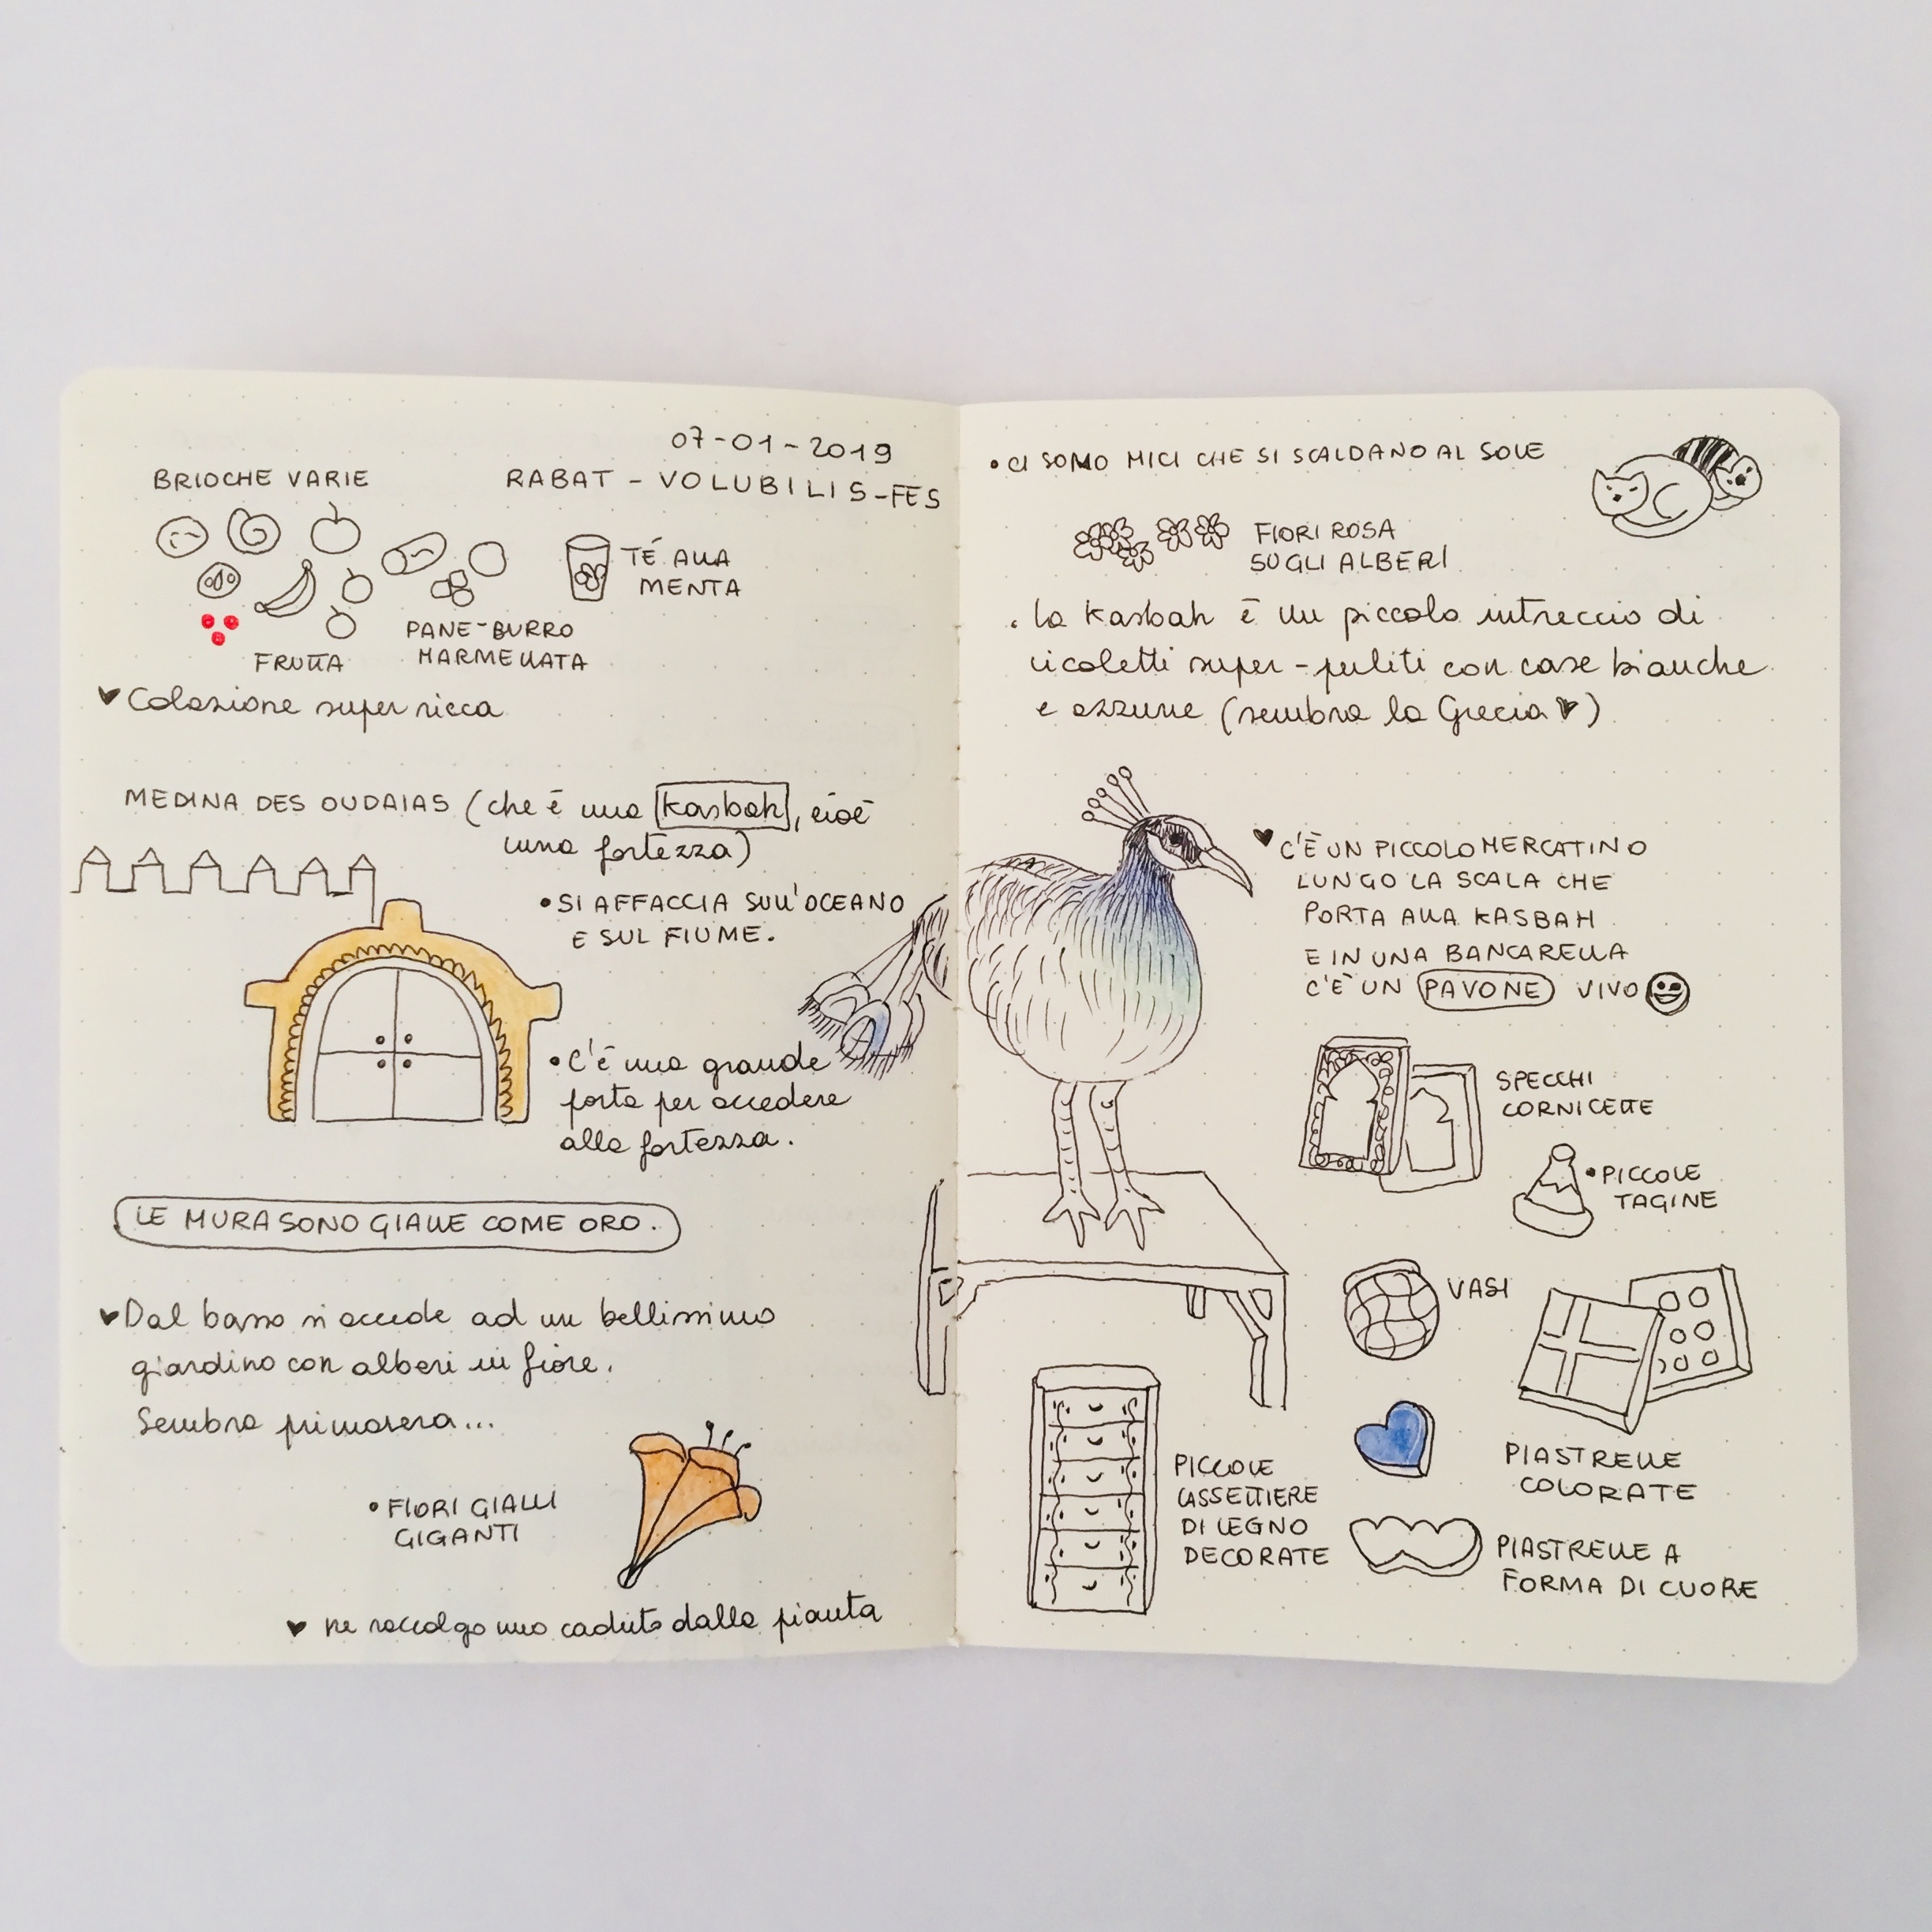 07-01-2019
BRIOCHE VARIE
RABAT - VOLUBILIS - FES
TÉ ALLA
MENTA
PANE-BURRO
MARMELLATA
FRUTTA
Colazione super ricca
MEDINA DES OUDAIAS (che è una kasbah, cioè
una fortezza)
• SI AFFACCIA SULL'OCEANO
E SUL FIUME.
• C'è una grande
porta per accedere
alla fortezza.
LE MURA SONO GIALLE COME ORO.
Dal basso si accede ad un bellissimo
giardino con alberi in fiore.
Sembra primavera...
• FIORI GIALLI
GIGANTI
ne raccolgo uno caduto dalla pianta
• CI SONO MICI CHE SI SCALDANO AL SOLE
FIORI ROSA
SUGLI ALBERI
• la kasbah è un piccolo intreccio di
vicoletti super-puliti con case bianche
e azzurre (sembra la Grecia ♥)
C'È UN PICCOLO MERCATINO
LUNGO LA SCALA CHE
PORTA ALLA KASBAH
E IN UNA BANCARELLA
C'È UN PAVONE VIVO
SPECCHI
CORNICETTE
• PICCOLE
TAGINE
VASI
PIASTRELLE
COLORATE
PICCOLE
CASSETTIERE
DI LEGNO
DECORATE
PIASTRELLE A
FORMA DI CUORE